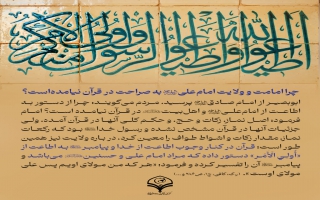 اطیعوا الله و اطیعوا الرسول و اولی الامر منکم
چرا امامت و ولایت امام علی به صراحت در قرآن نیامده‌است؟
ابوبصیر از امام صادق پرسید، مردم می‌گویند: چرا از دستور به
اطاعت از امام علی و اهل‌بیت در قرآن نیامده است؟ امام
فرمود: اصل نماز، زکات و حج، و حکم کلی آنها در قرآن آمده، ولی
جزئیات آنها در قرآن مشخص نشده و رسول خدا بود که رکعات
نماز، مقدار زکات و اشواط طواف را معین کرد. درباره ولایت نیز همین
طور است؛ قرآن در کنار وجوب اطاعت از خدا و پیامبر به اطاعت از
«أولی الأمر» دستور داده که مراد امام علی و حسنین می‌باشد و
پیامبر آن را تفسیر کرده و فرمود: «هر که من مولای اویم پس علی
مولای اوست».